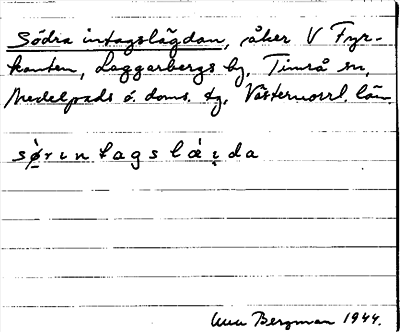 Södra intagslägdan, åker V Fyr-
kanten, Laggarbergs by, Timrå sn,
Medelpads ö. doms. tg, Västernorrl. län
sø̣rintagslǽi̯da
Bergman 1944.